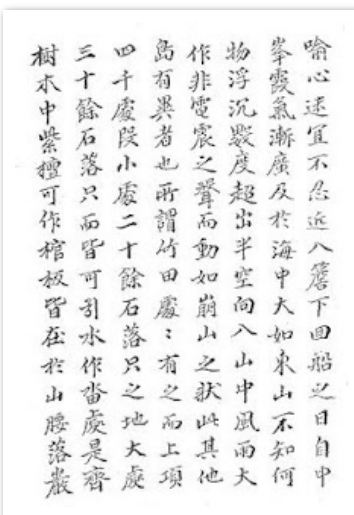 喻心迷宜不忍近入簷下回船之日自中
峯霞氣漸廣及於海中大如東山不知何
物浮沉數度超出半空向入山中風雨大
作非電震之聲而動如崩山之狀此其他
島有異者也所謂竹田處〻有之而上項
四千處段小處二十餘石落只之地大處
三十餘石落只而皆可引水作畓處是齊
樹木中紫檀可作棺板皆在於山腰落巖